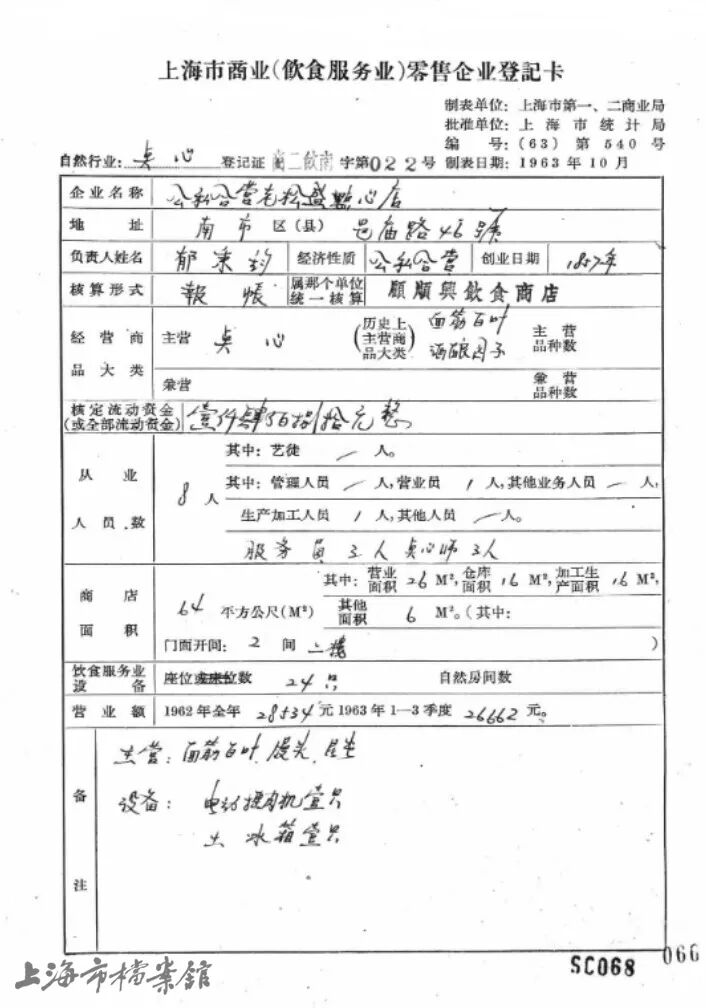 上海市商业(飲食服务业)零售企业登記卡
制表单位: 上海市第一、二商业局
批准单位: 上海市统计局
编号: (63) 第540号
自然行业: 点心 登记证 商二飲南 字第022号 制表日期: 1963年10月
企业名称 公私合营老松盛點心店
地址 南市区(县) 邑庙路46號
负责人姓名 郁秉均 经济性质 公私合营 创业日期 1857年
核算形式 報帳 属那个单位统一核算 顧順興飲食商店
经营商品大类 主营 点心 (历史上主营商品大类) 面筋百叶 酒酿园子 主营品种数
兼营 兼营品种数
核定流动资金(或全部流动资金) 壹仟肆佰捌拾元整
从业人员数 8人
其中: 艺徒 / 人。
其中: 管理人员 / 人, 营业员 1 人, 其他业务人员 / 人,
生产加工人员 1 人, 其他人员 / 人。
服务员 3人 点心师 3人
商店面积 64 平方公尺(M²)
其中: 营业面积 26 M², 仓库面积 16 M², 加工生产面积 16 M²,
其他面积 6 M²。(其中:
门面开间: 2 间 二楼 )
飲食服务业设备 座位或床位数 24只 自然房间数
营业额 1962年全年 28534元 1963年1—3季度 26662元。
备注
主营: 面筋百叶, 馒头,
设备: 电动摇肉机壹只
土冰箱壹只
上海市檔案館
SC068
066